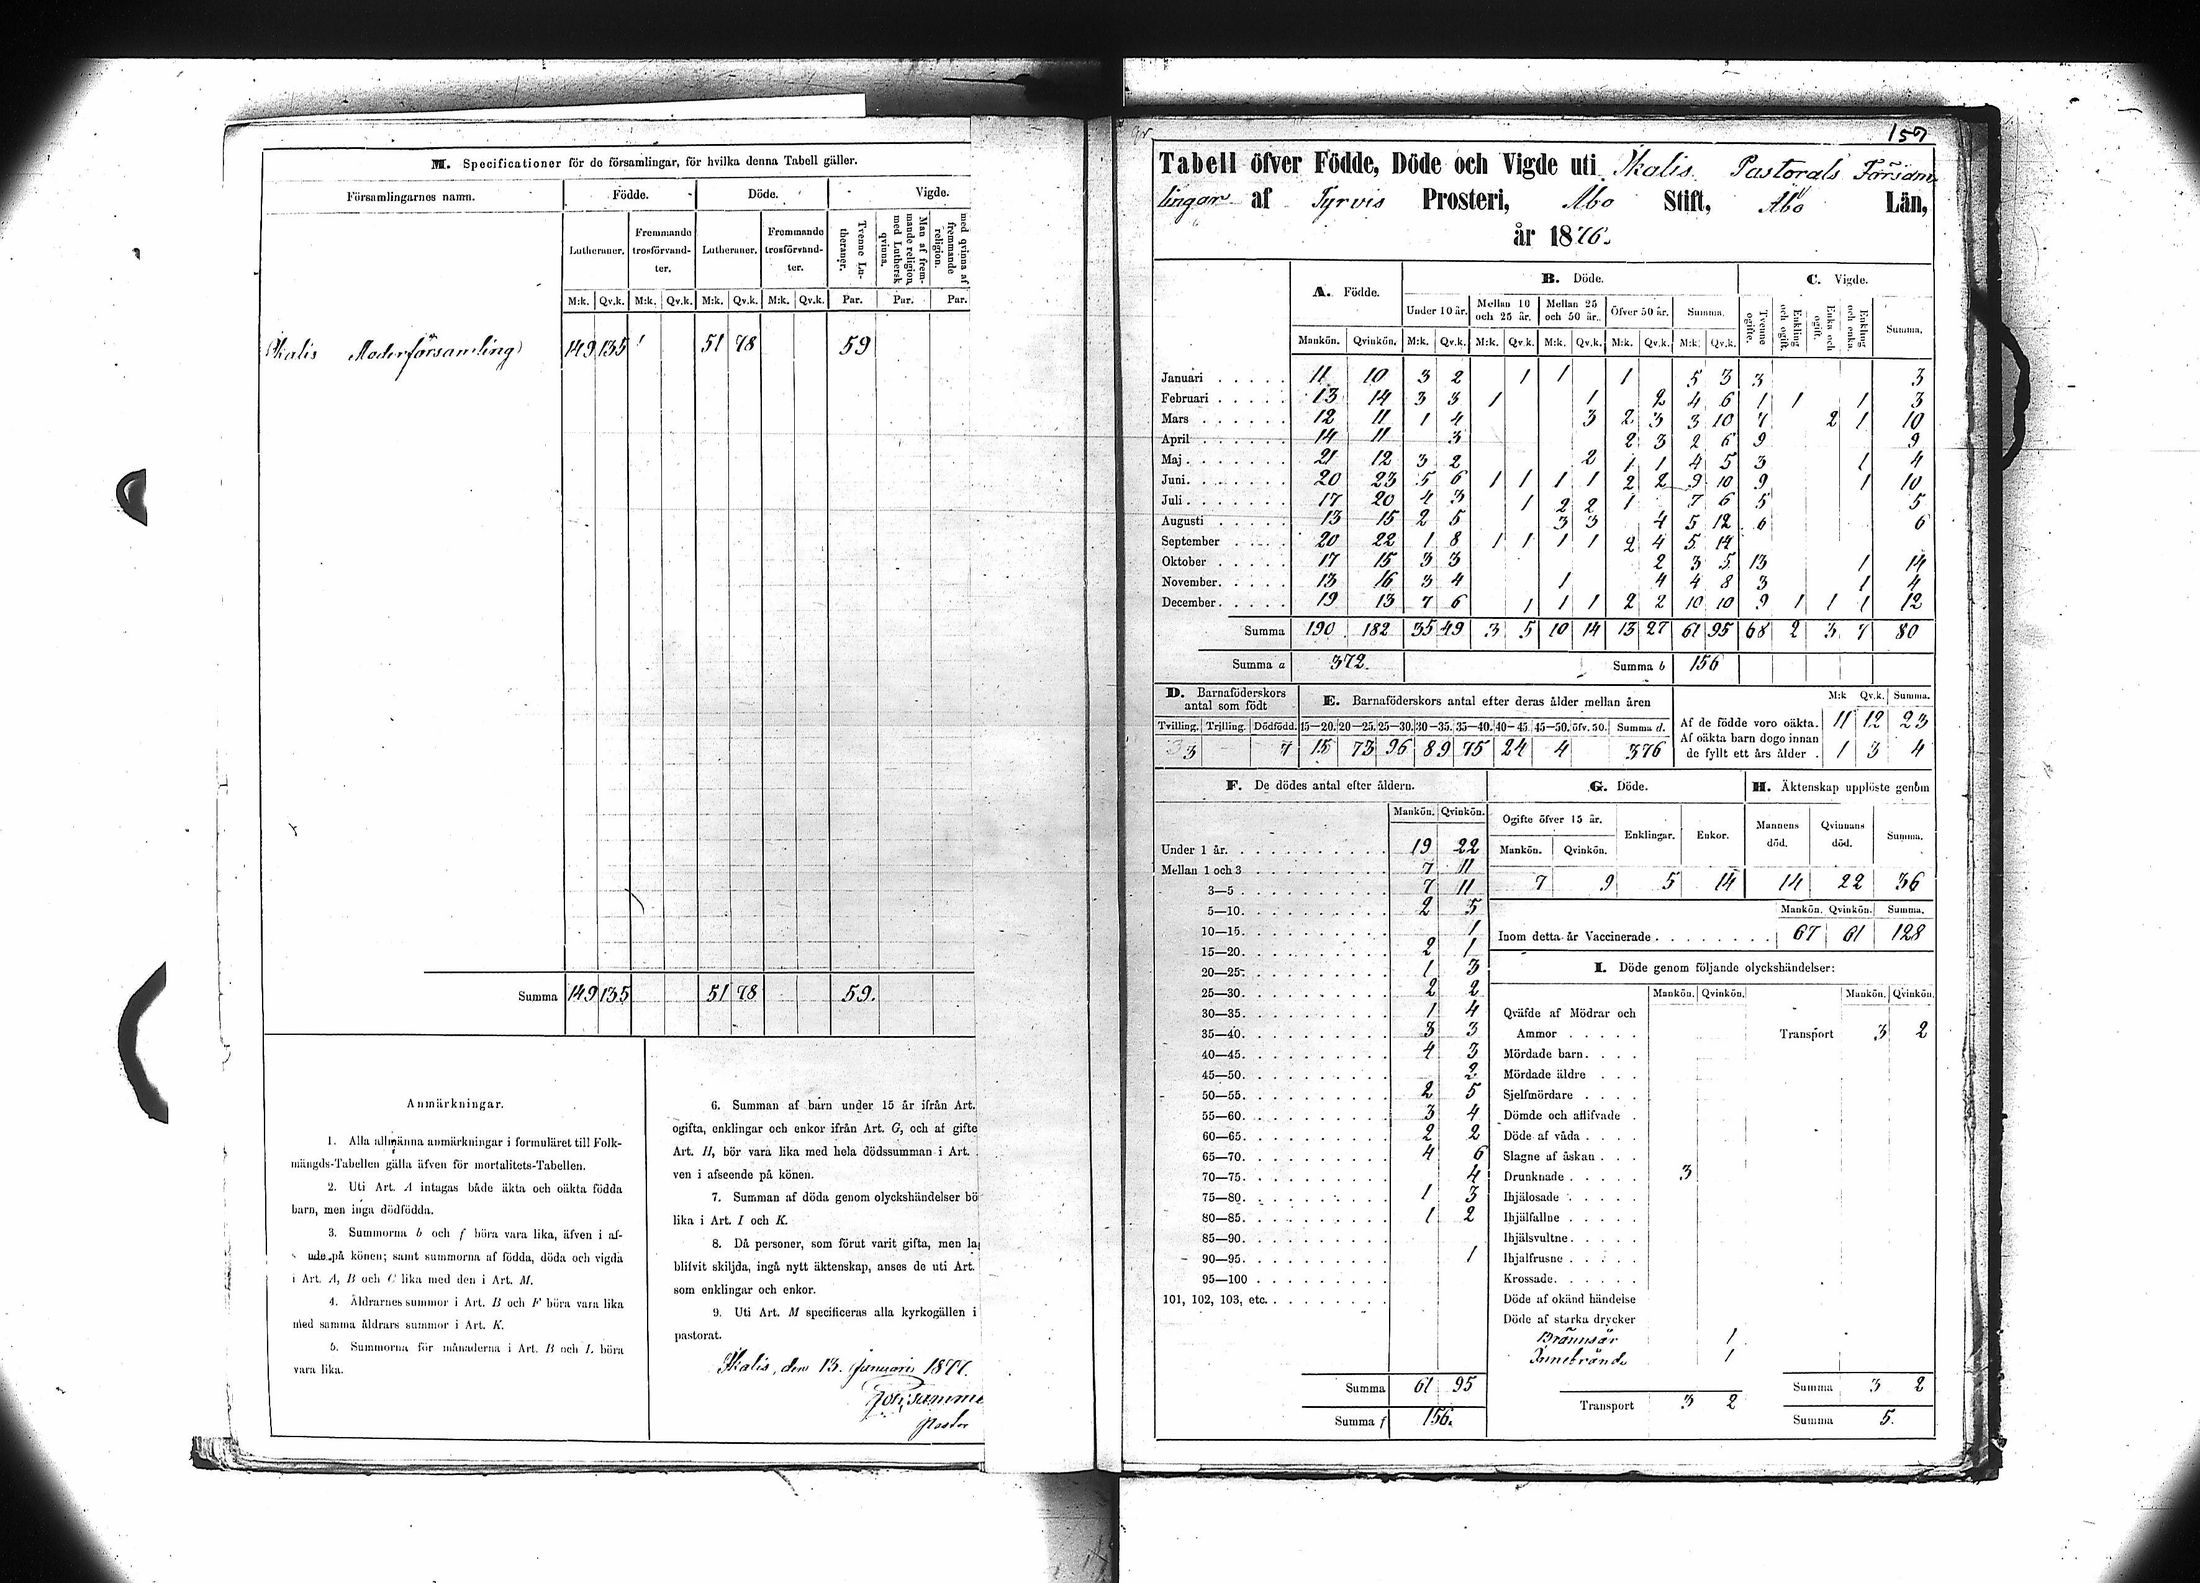 M. Specificationer för de församlingar, för hvilka denna Tabell gäller.
Församlingarnes namn. Födde. Döde. Vigde.
Lutheraner. Fremmande trosförvandter. Lutheraner. Fremmande trosförvandter. Tvenne Lutheraner. Man af fremmande religion med Luthersk qvinna. med qvinna af fremmande religion.
M:k. Qv.k. M:k. Qv.k. M:k. Qv.k. M:k. Qv.k. Par. Par. Par.
Ikalis Moderförsamling 149 135 51 78 59
Summa 149 135 51 78 59.
Anmärkningar.
1. Alla allmänna anmärkningar i formuläret till Folk-
mängds-Tabellen gälla äfven för mortalitets-Tabellen.
2. Uti Art. A intagas både äkta och oäkta födda
barn, men inga dödfödda.
3. Summorna b och f böra vara lika, äfven i af-
på könen; samt summorna af födda, döda och vigda
i Art. A, B och C lika med den i Art. M.
4. Åldrarnes summor i Art. B och F böra vara lika
med samma åldrars summor i Art. K.
5. Summorna för månaderna i Art. B och L böra
vara lika.
6. Summan af barn under 15 år ifrån Art.
ogifta, enklingar och enkor ifrån Art. G, och af gifte
Art. H, bör vara lika med hela dödssumman i Art.
ven i afseende på könen.
7. Summan af döda genom olyckshändelser bö
lika i Art. I och K.
8. Då personer, som förut varit gifta, men la
blifvit skiljda, ingå nytt äktenskap, anses de uti Art.
som enklingar och enkor.
9. Uti Art. M specificeras alla kyrkogällen i
pastorat.
Ikalis, den 13. Januari 1877.
Pastor
157
Tabell öfver Födde, Döde och Vigde uti Ikalis Pastorats Försam
lingar af Tyrvis Prosteri, Åbo Stift, Åbo Län,
år 1876.
A. Födde. B. Döde. C. Vigde.
Under 10 år. Mellan 10 och 25 år. Mellan 25 och 50 år. Öfver 50 år. Summa. Tvenne ogifte. Enkling och ogift. Enka och ogift. Enkling och enka. Summa.
Mankön. Qvinkön. M:k. Qv.k. M:k. Qv.k. M:k. Qv.k. M:k. Qv.k. M:k. Qv.k.
Januari 11 10 3 2 1 1 1 5 3 3 3
Februari 13 14 3 3 1 1 2 4 6 1 1 1 3
Mars 12 11 1 4 3 2 3 3 10 7 2 1 10
April 14 11 3 2 3 2 6 9 9
Maj 21 12 3 2 2 1 1 4 5 3 1 4
Juni 20 23 5 6 1 1 1 1 2 2 9 10 9 1 10
Juli 17 20 4 3 1 2 2 1 7 6 5 5
Augusti 13 15 2 5 3 3 4 5 12 6 6
September 20 22 1 8 1 1 1 1 2 4 5 14
Oktober 17 15 3 3 2 3 5 13 1 14
November 13 16 3 4 1 4 4 8 3 1 4
December 19 13 7 6 1 1 1 2 2 10 10 9 1 1 1 12
Summa 190 182 35 49 3 5 10 14 13 27 61 95 68 2 3 7 80
Summa a 372. Summa b 156
D. Barnaföderskors antal som födt
Tvilling. Trilling. Dödfödd.
3 7
E. Barnaföderskors antal efter deras ålder mellan åren
15—20. 20—25. 25—30. 30—35. 35—40. 40—45 45—50. öfv. 50. Summa d.
15 73 96 89 75 24 4 376
M:k Qv.k. Summa.
Af de födde voro oäkta. 11 12 23
Af oäkta barn dogo innan
de fyllt ett års ålder . 1 3 4
F. De dödes antal efter åldern.
Mankön. Qvinkön.
Under 1 år. 19 22
Mellan 1 och 3 7 11
3—5 7 11
5—10. 2 5
10—15. 1
15—20. 2 1
20—25. 1 3
25—30. 2 2
30—35. 1 4
35—40. 3 3
40—45. 4 3
45—50. 2
50—55. 2 5
55—60. 3 4
60—65. 2 2
65—70. 4 6
70—75. 4
75—80. 1 3
80—85. 1 2
85—90.
90—95. 1
95—100
101, 102, 103, etc.
Summa 61 95
Summa f 156.
G. Döde.
Ogifte öfver 15 år. Enklingar. Enkor.
Mankön. Qvinkön.
7 9 5 14
H. Äktenskap upplöste genom
Mannens död. Qvinnans död. Summa.
14 22 36
Mankön. Qvinkön. Summa.
Inom detta år Vaccinerade 67 61 128
I. Döde genom följande olyckshändelser:
Mankön. Qvinkön. Mankön. Qvinkön.
Qväfde af Mödrar och
Ammor Transport 3 2
Mördade barn
Mördade äldre
Sjelfmördare
Dömde och aflifvade
Döde af våda
Slagne af åskan
Drunknade 3
Ihjälosade
Ihjälfallne
Ihjälsvultne
Ihjälfrusne
Krossade
Döde af okänd händelse
Döde af starka drycker
Brännsår 1
Innebrände 1
Transport 3 2
Summa 3 2
Summa 5.